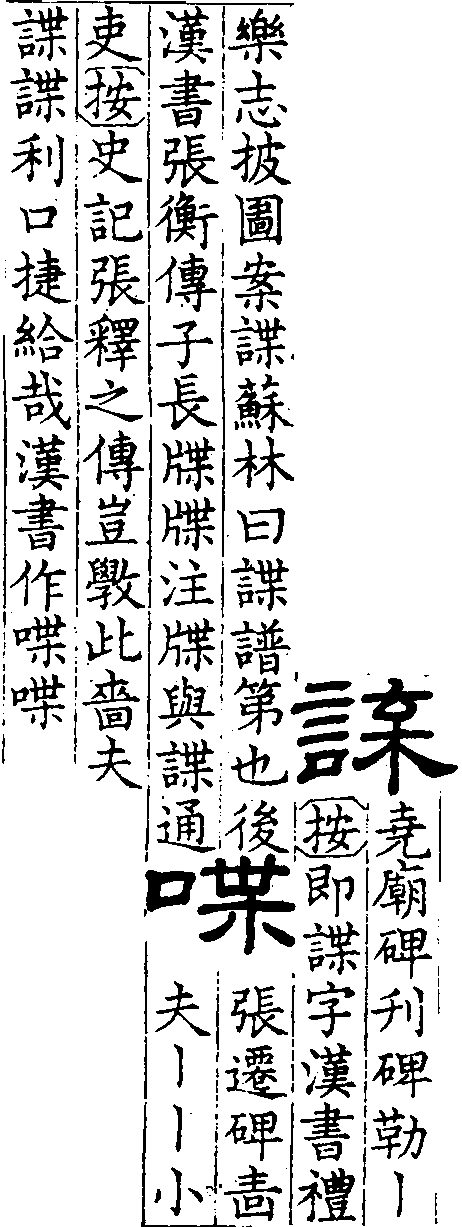 尭廟碑刊碑勒丨
按即諜字漢書禮
樂志披圖案諜蘇林曰諜譜第也後
漢書張衡傳子長牒牒注牒與諜通
喋
張遷碑嗇
夫丨丨小
吏按史記張釋之傳豈斆此嗇夫
諜諜利口捷給哉漢書作喋喋